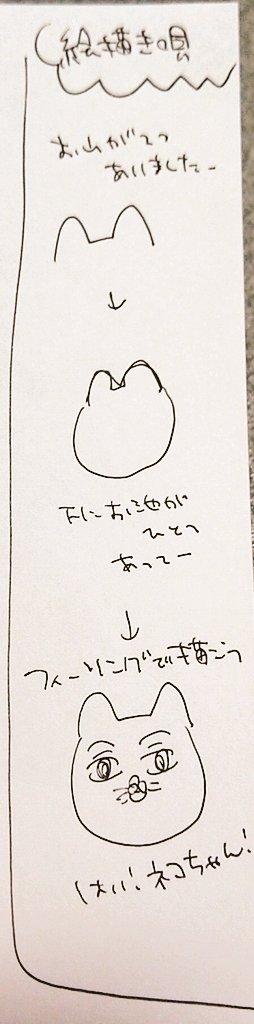 絵描き唄
お山が2つ
ありましたー
下にお池が
ひとつ
あってー
フィーリングで描こう
はい!ネコちゃん!